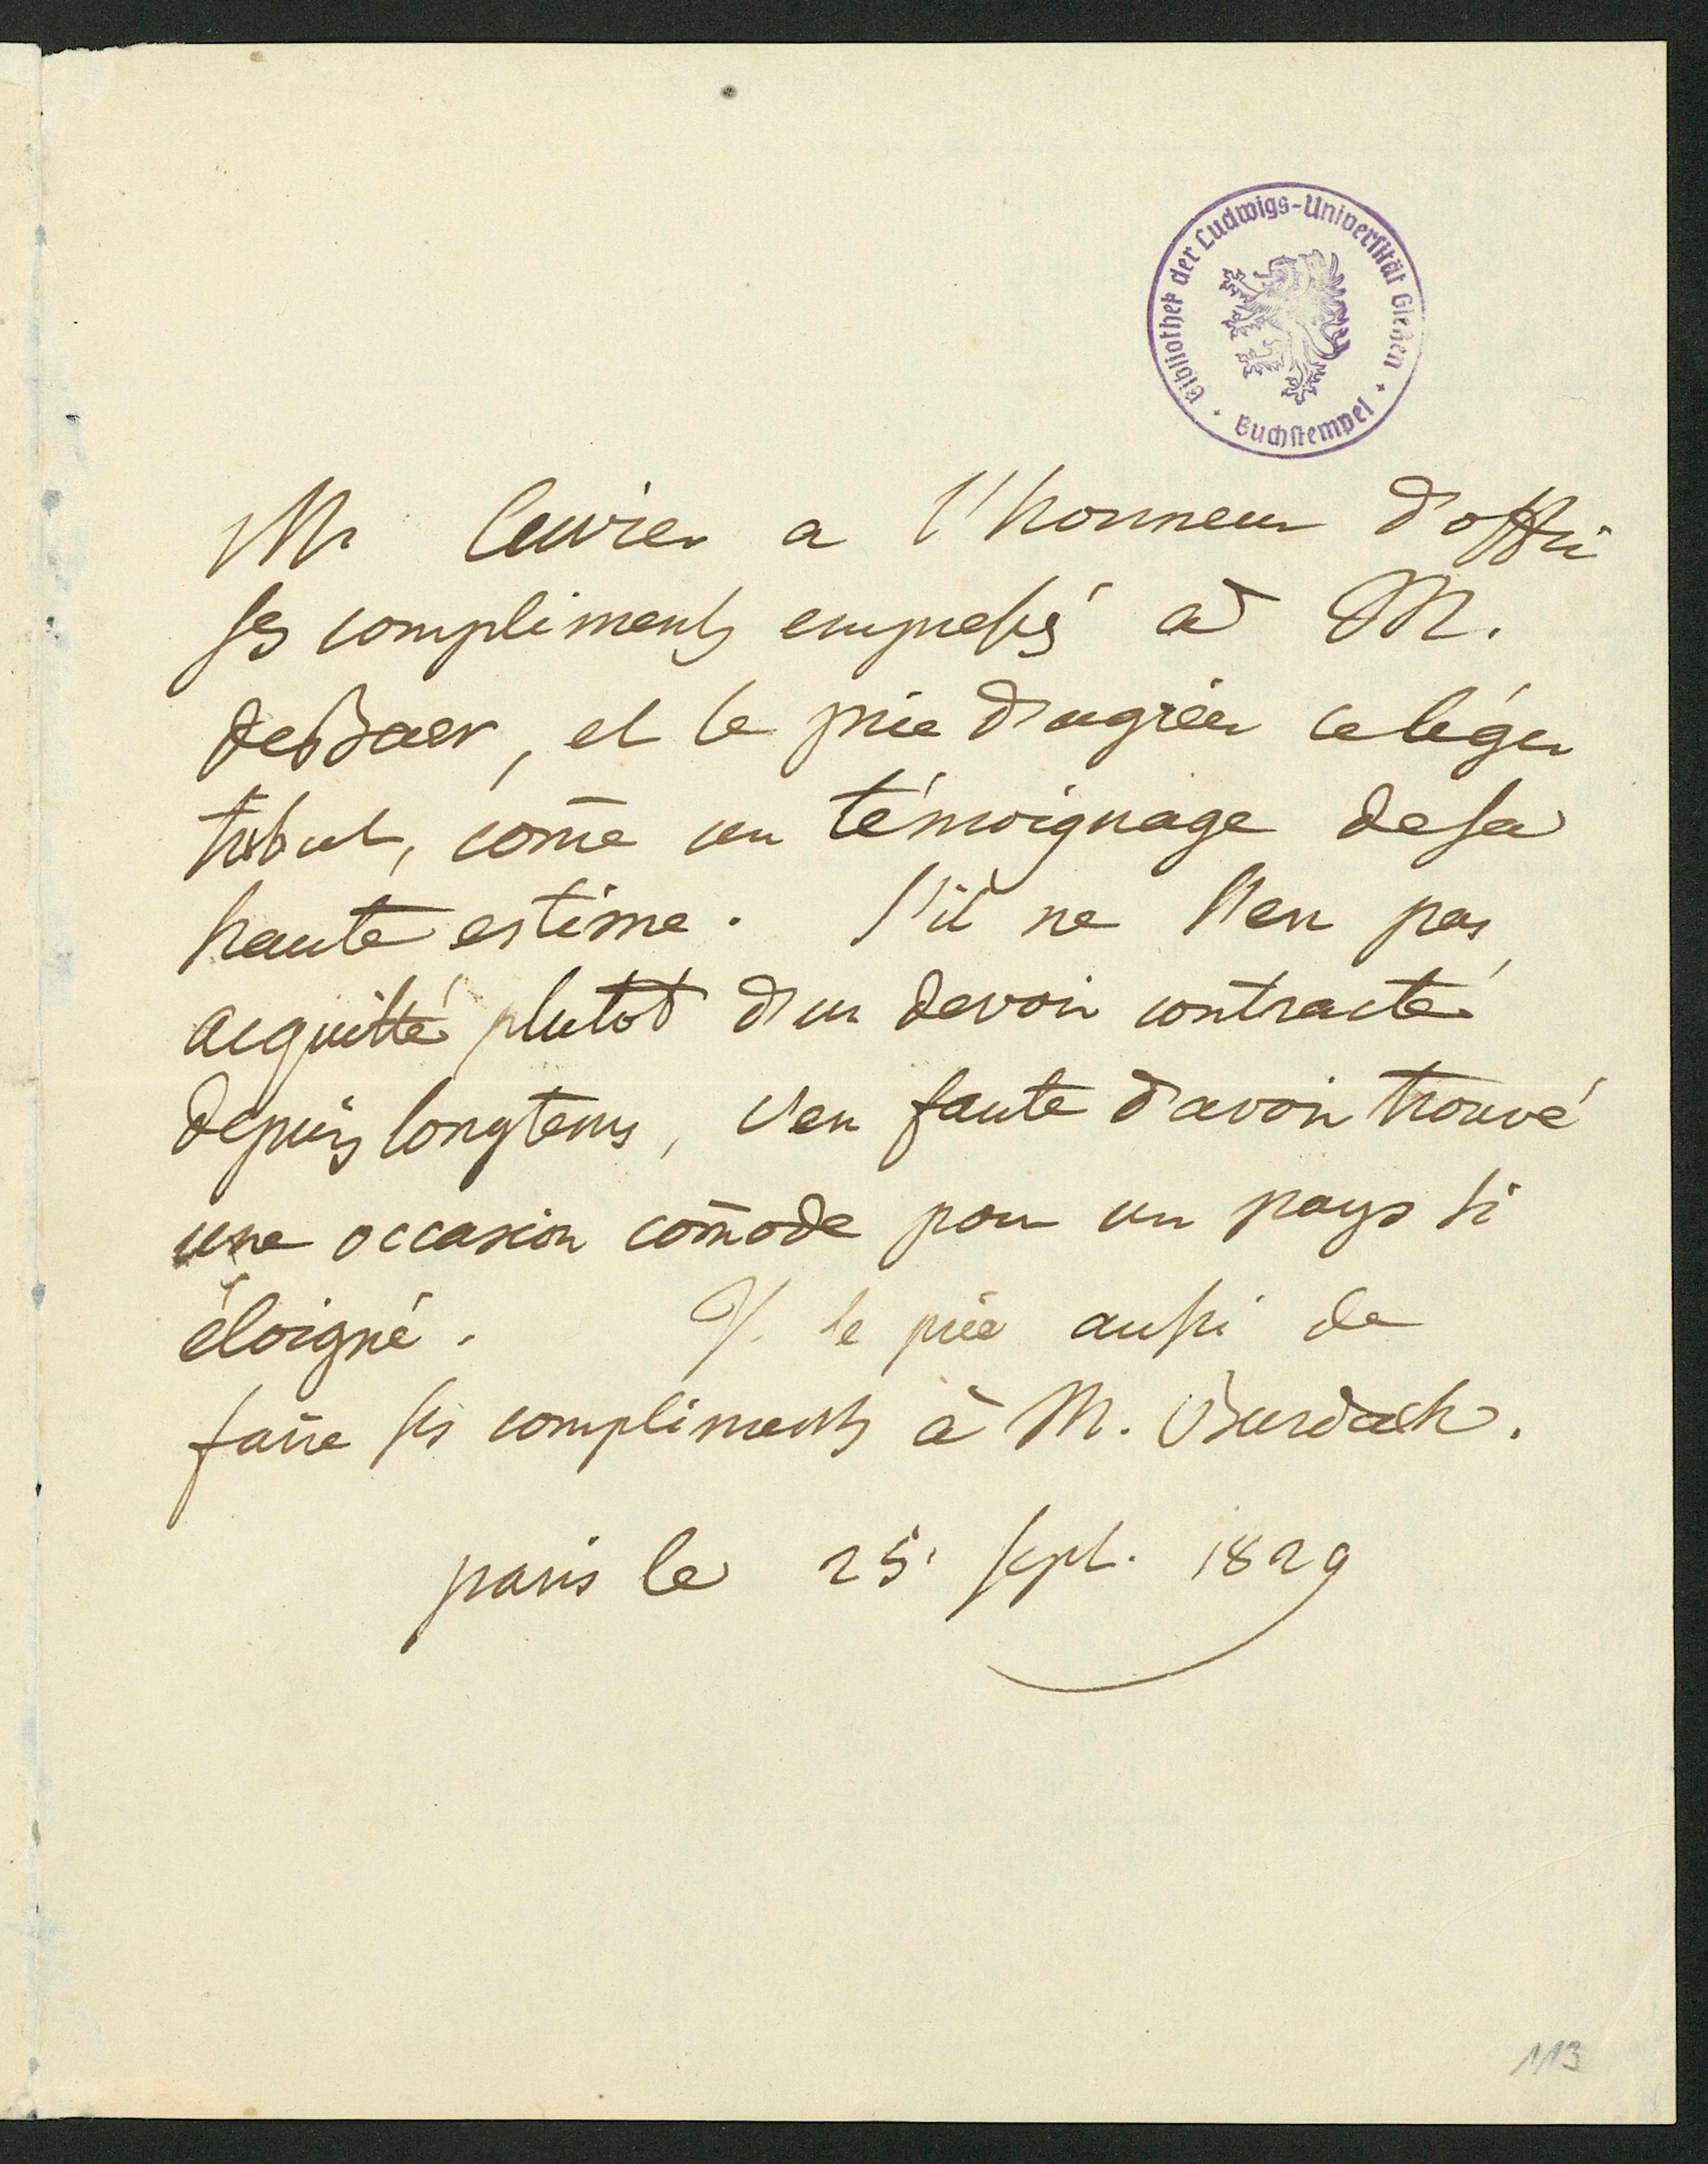 Bibliothek der Ludwigs-Universität Gießen
Buchstempel
Mr Cuvier a l'honneur d'offrir
ses compliments empressés à M.
de Baer, et le prie d'agréer ce léger
tribut, com̄e un témoignage de sa
haute estime. S'il ne s'est pas
acquitté plutot d'un devoir contracté
depuis longtems, c'est faute d'avoir trouvé
une occasion com̄ode pour un pays si
éloigné. Il le prie aussi de
faire ses compliments à M. Burdach.
paris le 25 sept. 1829
113